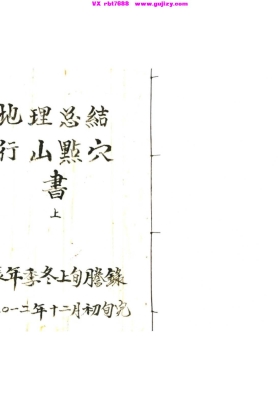 VX rbt7688 www.gujizy.com
地理总結
行山點穴
書
上
年季冬上旬謄錄
○一二年十二月初旬完